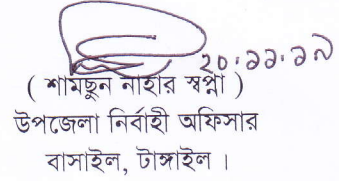 ২০.১১.১৯
( শামছুন নাহার স্বপ্না )
উপজেলা নির্বাহী অফিসার
বাসাইল, টাঙ্গাইল ।